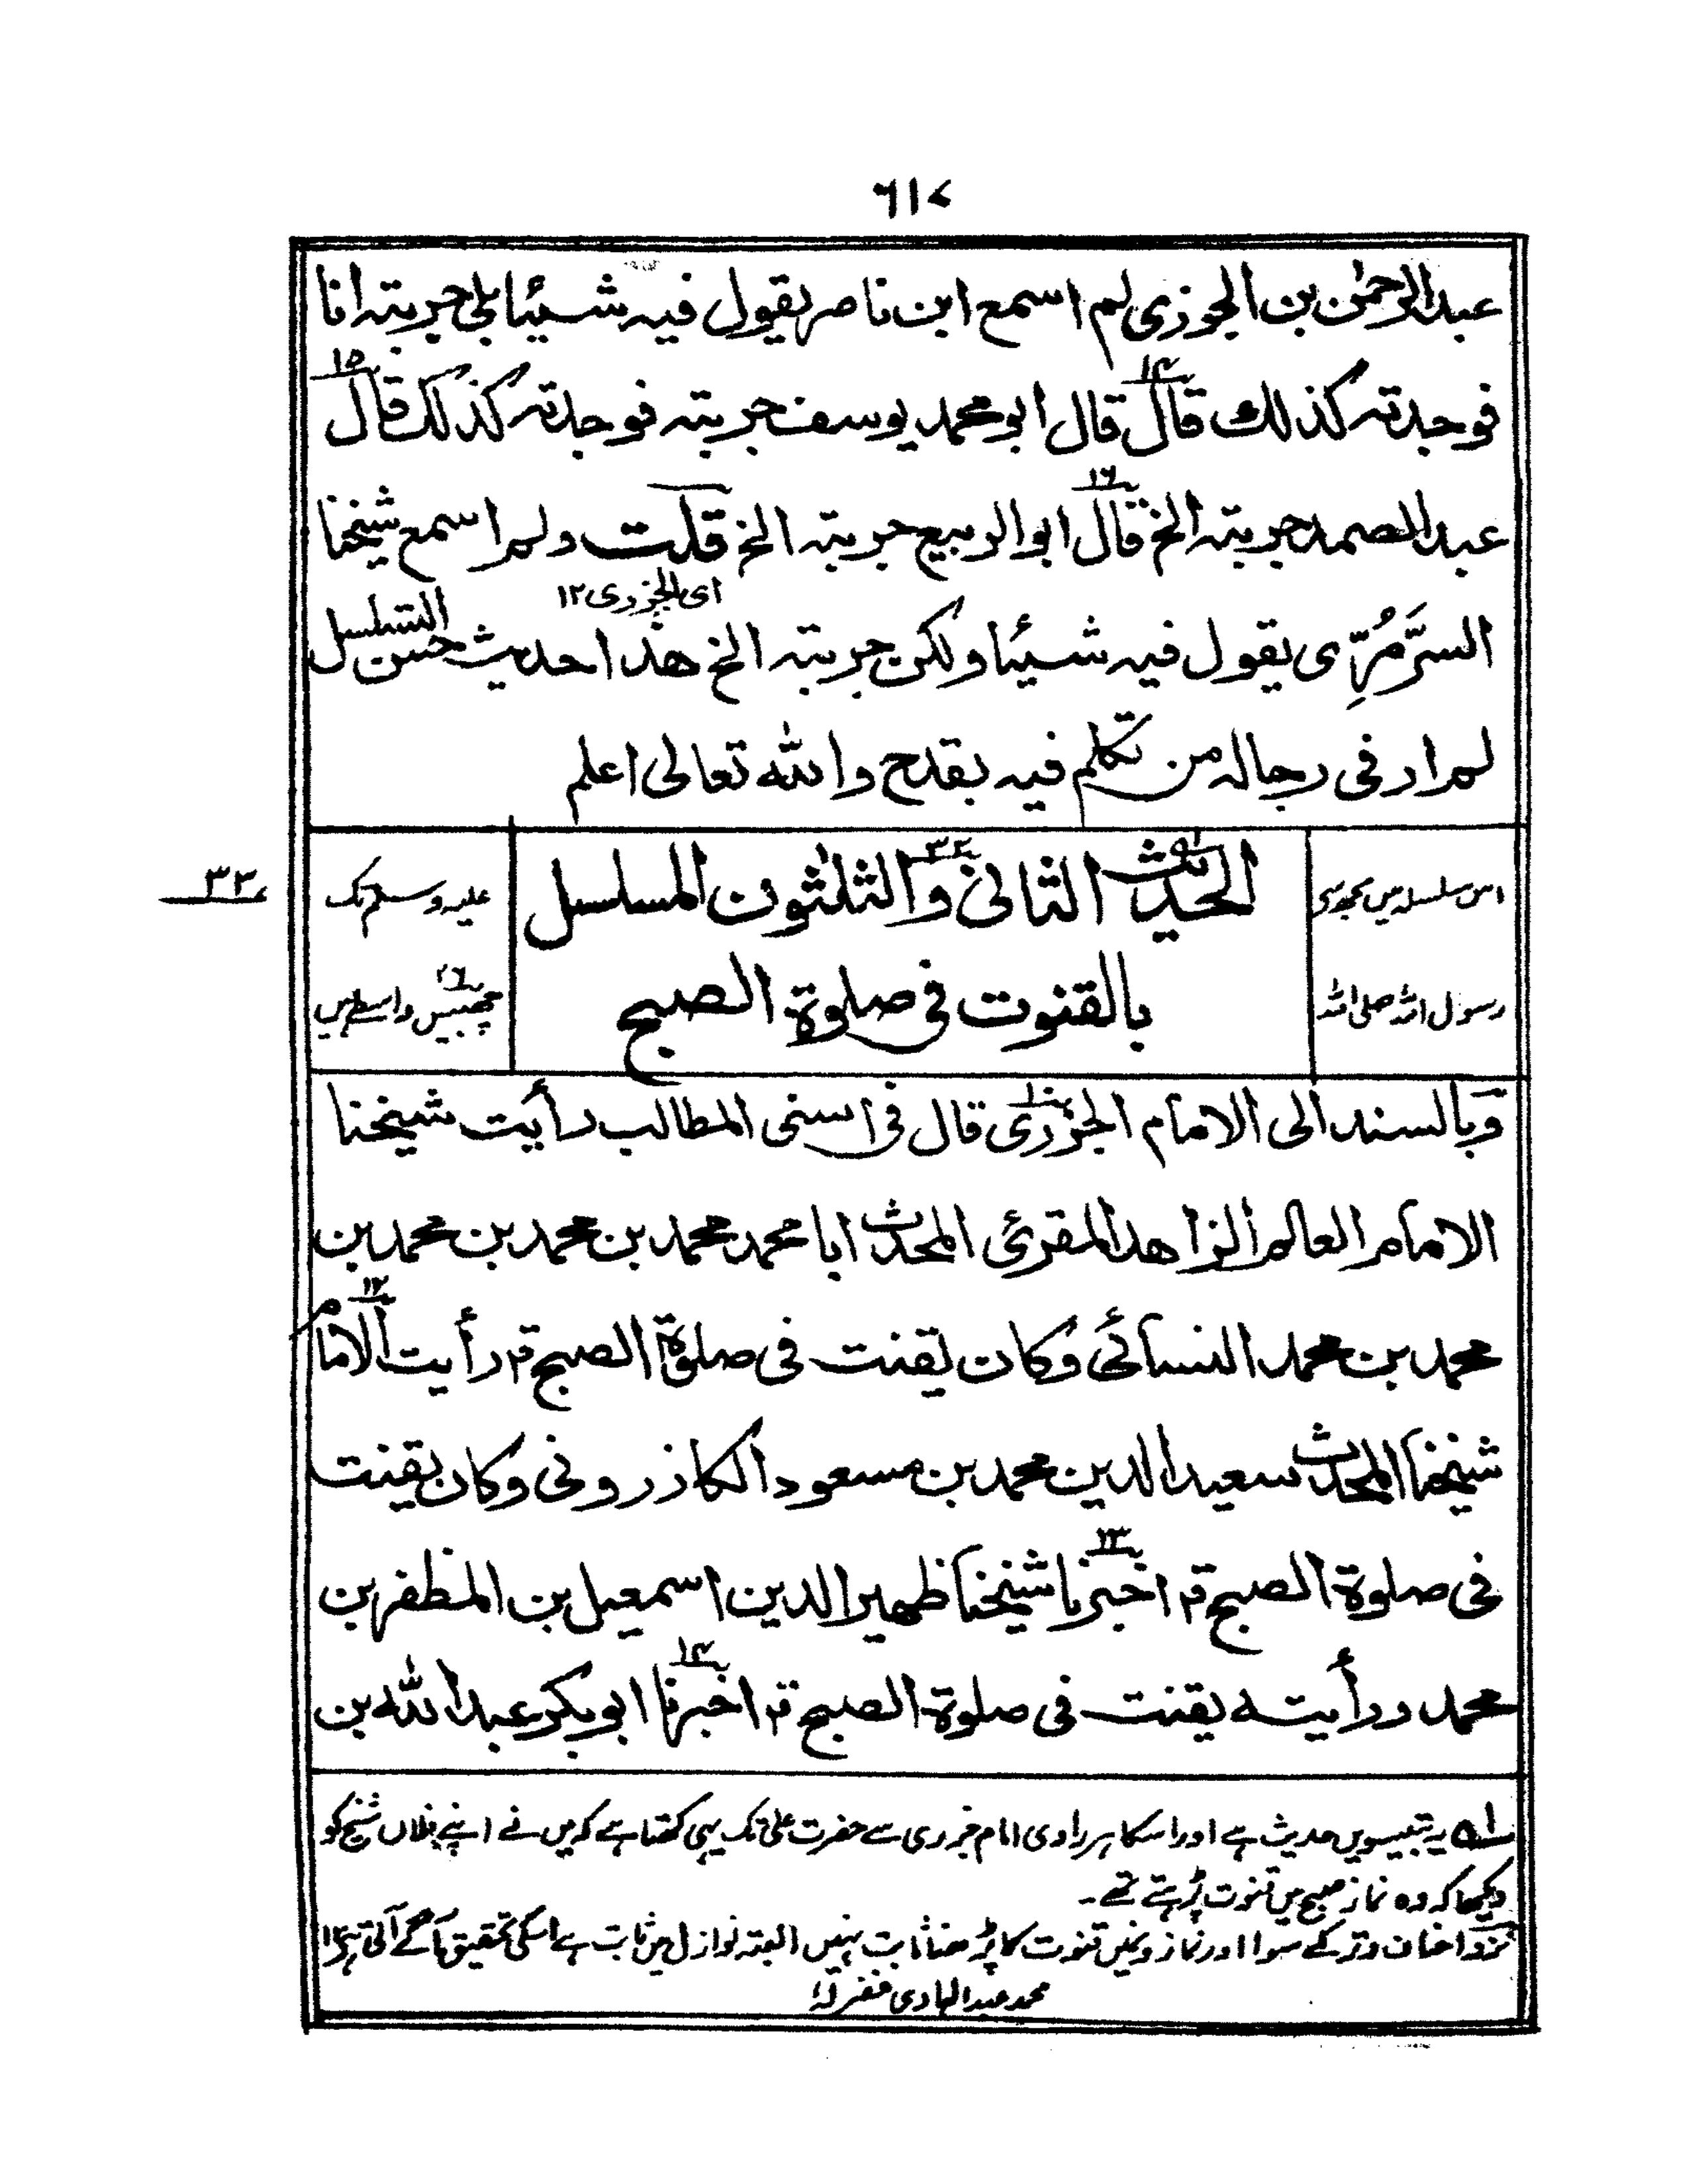 ٦١٧
عبد الرحمٰن بن الجوزی لم اسمع ابن ناصر یقول فیه شیئا بلی جربته انا
فوجدته کذلك قال قال ابو محمد یوسف جربته فوجدته کذلك قال
١٤ ١٥
عبد الصمد جربته الخ قال ابو الربیع جربته الخ قلت ولم اسمع شیخنا
١٦
ای الجزری ١٢
السرَّمُرِّی یقول فیه شیئا ولکن جربته الخ هذا حدیث حسن التسلسل
لم ار فی رجاله من تکلم فیه بقدح والله تعالی اعلم
اس سلسلہ میں مجھ سے
رسول اللہ صلی اللہ
الحدیث الثانی والثلٰثون المسلسل
٣٢
بالقنوت فی صلوة الصبح
علیہ وسلم تک
چھبیس واسطے ہیں
٢٦
٣٢
وبالسند الی الامام الجزری قال فی اسنی المطالب رأیت شیخنا
١٠
الامام العالم الزاهد المقرئ المحدث ابا محمد محمد بن محمد بن محمد بن
محمد بن محمد النسائی وکان یقنت فی صلوة الصبح قم رأیت الامام
١٢
شیخنا المحدث سعید الدین محمد بن مسعود الکازرونی وکان یقنت
فی صلوة الصبح قم اخبرنا شیخنا ظهیر الدین اسمعیل بن المظفر بن
١٣
محمد ورأیته یقنت فی صلوة الصبح قم اخبرنا ابو بکر عبد الله بن
١٤
لہ یہ بتیسویں حدیث ہے اور اسکا ہر راوی امام جزری سے حضرت علی تک یہی کہتا ہے کہ میں نے اپنے فلاں شیخ کو
دیکھا کہ وہ نماز صبح میں قنوت پڑہتے تھے۔
نزد احناف وتر کے سوا اور نمازونمیں قنوت کا پڑھنا ثابت نہیں البتہ نوازل میں ثابت ہے اسکی تحقیق آگے آتی ہے ١٢
محمد عبد الہادی غفر لہ